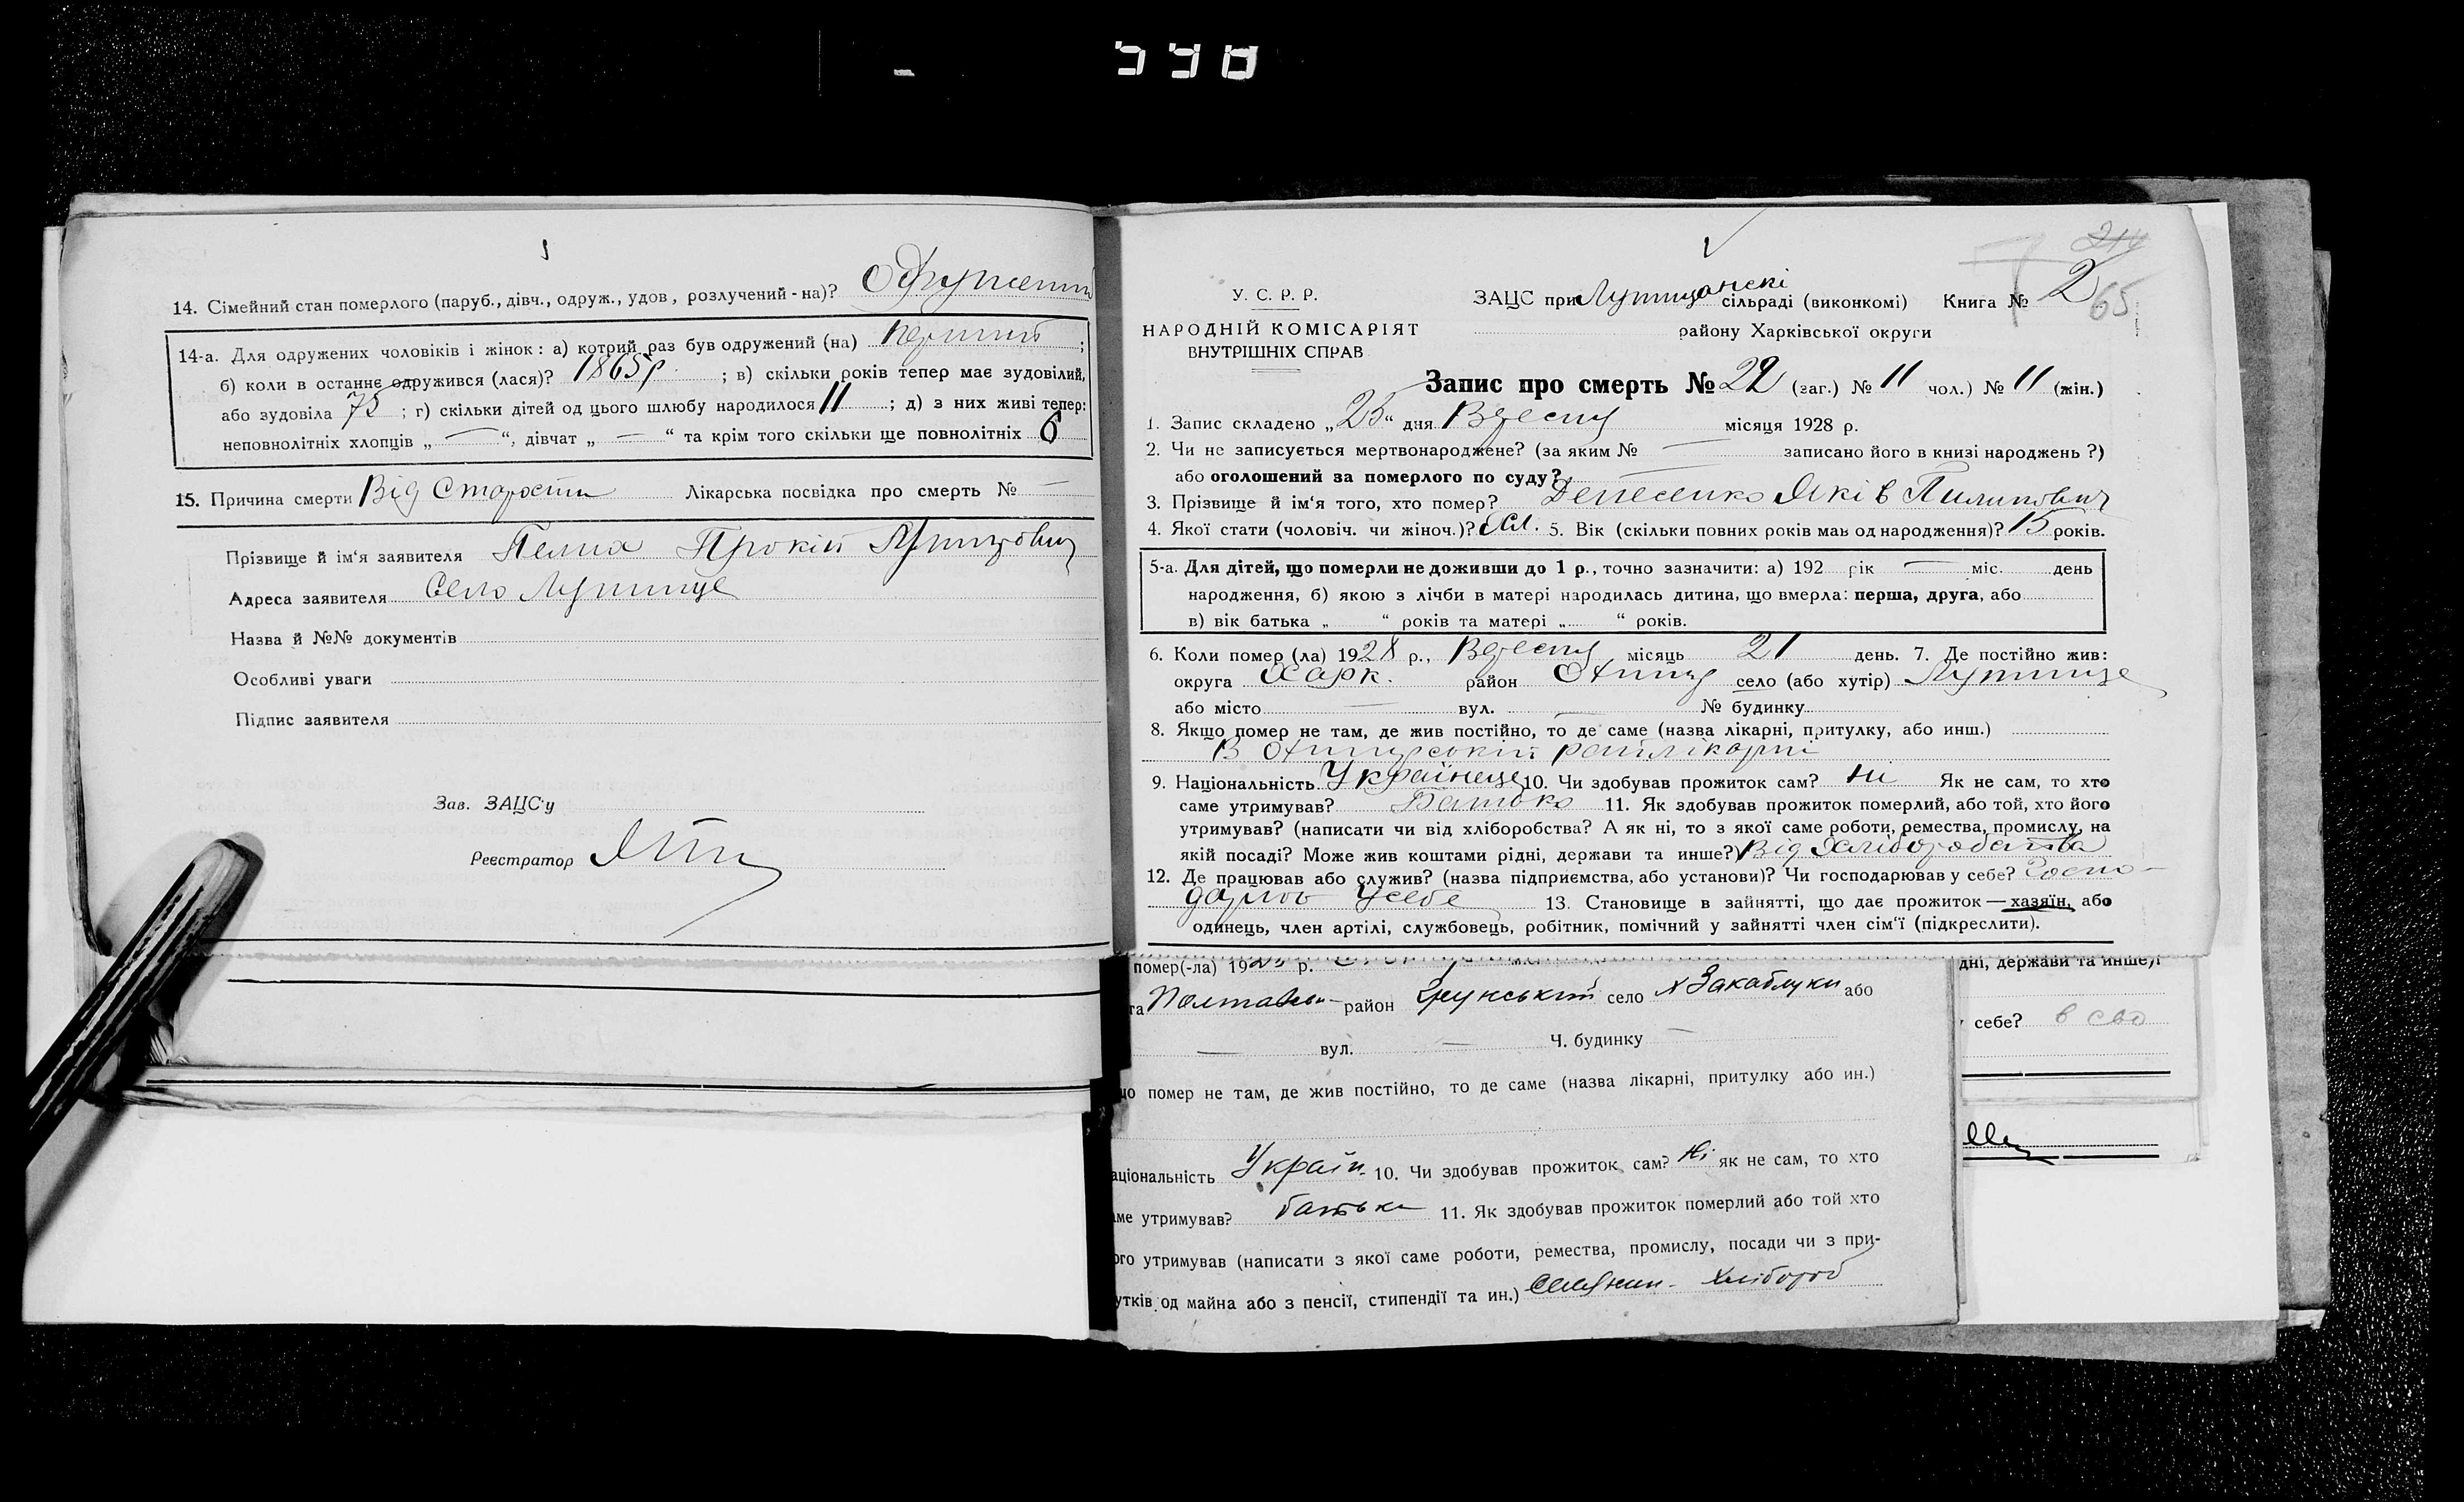 598
14. Сімейний стан померлого (паруб., дівч., одруж., удов, розлучений-на)? Одружений
14-а. Для одружених чоловіків і жінок: а) котрий раз був одружений (на) перший;
б) коли в останнє одружився (лася)? 1865р ; в) скільки років тепер має зудовілий,
або зудовіла 75 ; г) скільки дітей од цього шлюбу народилося 11 ; д) з них живі тепер:
неповнолітніх хлопців „ — “, дівчат „ — “ та крім того скільки ще повнолітніх 6
15. Причина смерти Від Старости Лікарська посвідка про смерть № —
Прізвище й ім‘я заявителя Прокіп
Адреса заявителя Село Лутище
Назва й №№ документів
Особливі уваги
Підпис заявителя
Зав. ЗАЦС‘у
Реєстратор
214
У. С. Р. Р.
НАРОДНІЙ КОМІСАРІЯТ
ВНУТРІШНІХ СПРАВ
ЗАЦС при Лутищанскі сільраді (виконкомі) Книга № 2
65
району Харківської округи
Запис про смерть № 22 (заг.) № 11 чол.) № 11 (жін.)
1. Запис складено „ 25 “ дня Вересня місяця 1928 р.
2. Чи не записується мертвонароджене? (за яким № — записано його в книзі народжень ?)
або оголошений за померлого по суду?
3. Прізвище й ім‘я того, хто помер? Яків Пилипович
4. Якої стати (чоловіч. чи жіноч.)? Чол. 5. Вік (скільки повних років мав од народження)? 15 років.
5-а. Для дітей, що померли не доживши до 1 р., точно зазначити: а) 192 рік — міс. день
народження, б) якою з лічби в матері народилась дитина, що вмерла: перша, друга, або
в) вік батька „ “ років та матері „ “ років.
6. Коли помер (ла) 1928 р., Вересня місяць 21 день. 7. Де постійно жив:
округа Харк. район Охтир село (або хутір) Лутище
або місто — вул. — № будинку
8. Якщо помер не там, де жив постійно, то де саме (назва лікарні, притулку, або инш.)
В Охтирській райлікарні
9. Національність Українець 10. Чи здобував прожиток сам? Ні Як не сам, то хто
саме утримував? Батько 11. Як здобував прожиток померлий, або той, хто його
утримував? (написати чи від хліборобства? А як ні, то з якої саме роботи, ремества, промислу, на
якій посаді? Може жив коштами рідні, держави та инше?) Від Хліборобства
12. Де працював або служив? (назва підприємства, або установи)? Чи господарював у себе? Госпо-
дарюв Усебе 13. Становище в зайнятті, що дає прожиток — хазяїн, або
одинець, член артілі, службовець, робітник, помічний у зайнятті член сім‘ї (підкреслити).
помер(-ла) 192 р.
та Полтавськ- район Грунський село х Закаблуки або
— вул. — Ч. будинку —
що помер не там, де жив постійно, то де саме (назва лікарні, притулку або ин.)
аціональність Україн- 10. Чи здобував прожиток сам? Ні як не сам, то хто
аме утримував? батьки 11. Як здобував прожиток померлий або той хто
ого утримував (написати з якої саме роботи, ремества, промислу, посади чи з при-
утків од майна або з пенсії, стипендії та ин.) Селянин - хлібороб
дні, держави та инше)?
себе? в сво